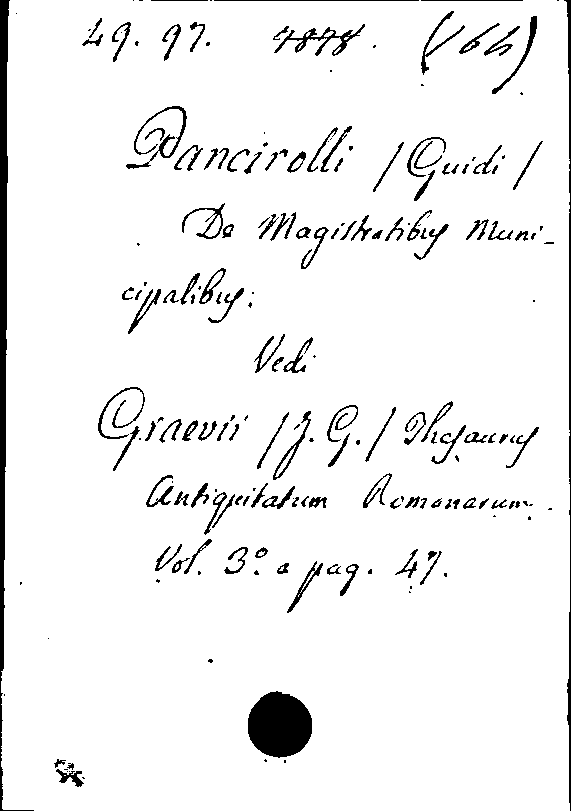 49. 97. 7878. (V 6h)
Pancirolli / Guidi /
De Magistratibus Muni-
cipalibus.
Vedi
Graevii / J. G. / Thesaurus
Antiquitatum Romanarum.
Vol. 3.º a pag. 47.